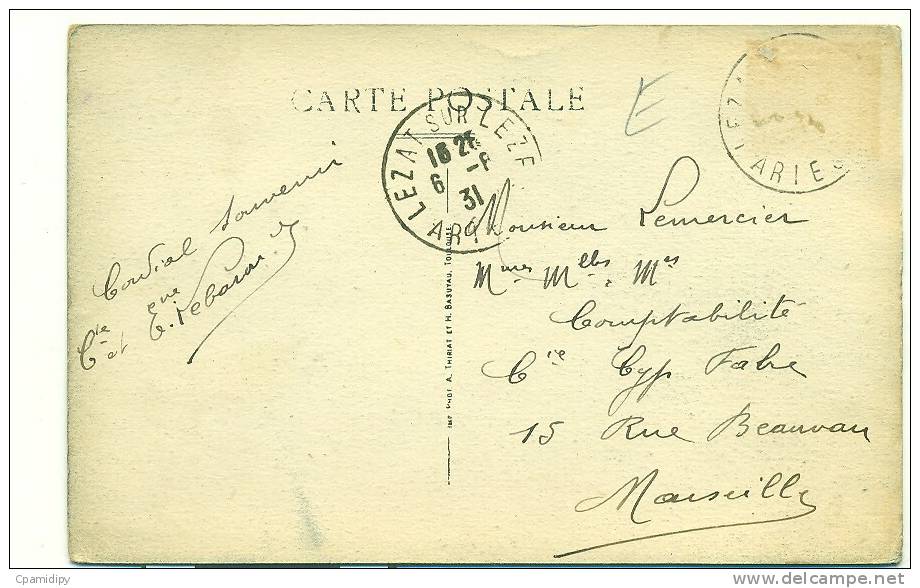 CARTE POSTALE
E
LEZAT SUR LEZE
16 25
6 -6
31
ARI
LEZA
ARIEG
Cordial souvenir
Cie et
Monsieur Lemercier
Mmes Mlles, Mrs
Comptabilité
Cie Cyp Fabre
15 Rue Beauvau
Marseille
IMP. PHOT. A. THIRIAT ET H. BASUYAU, TOULOUSE
Cpamidipy
www.delcampe.net